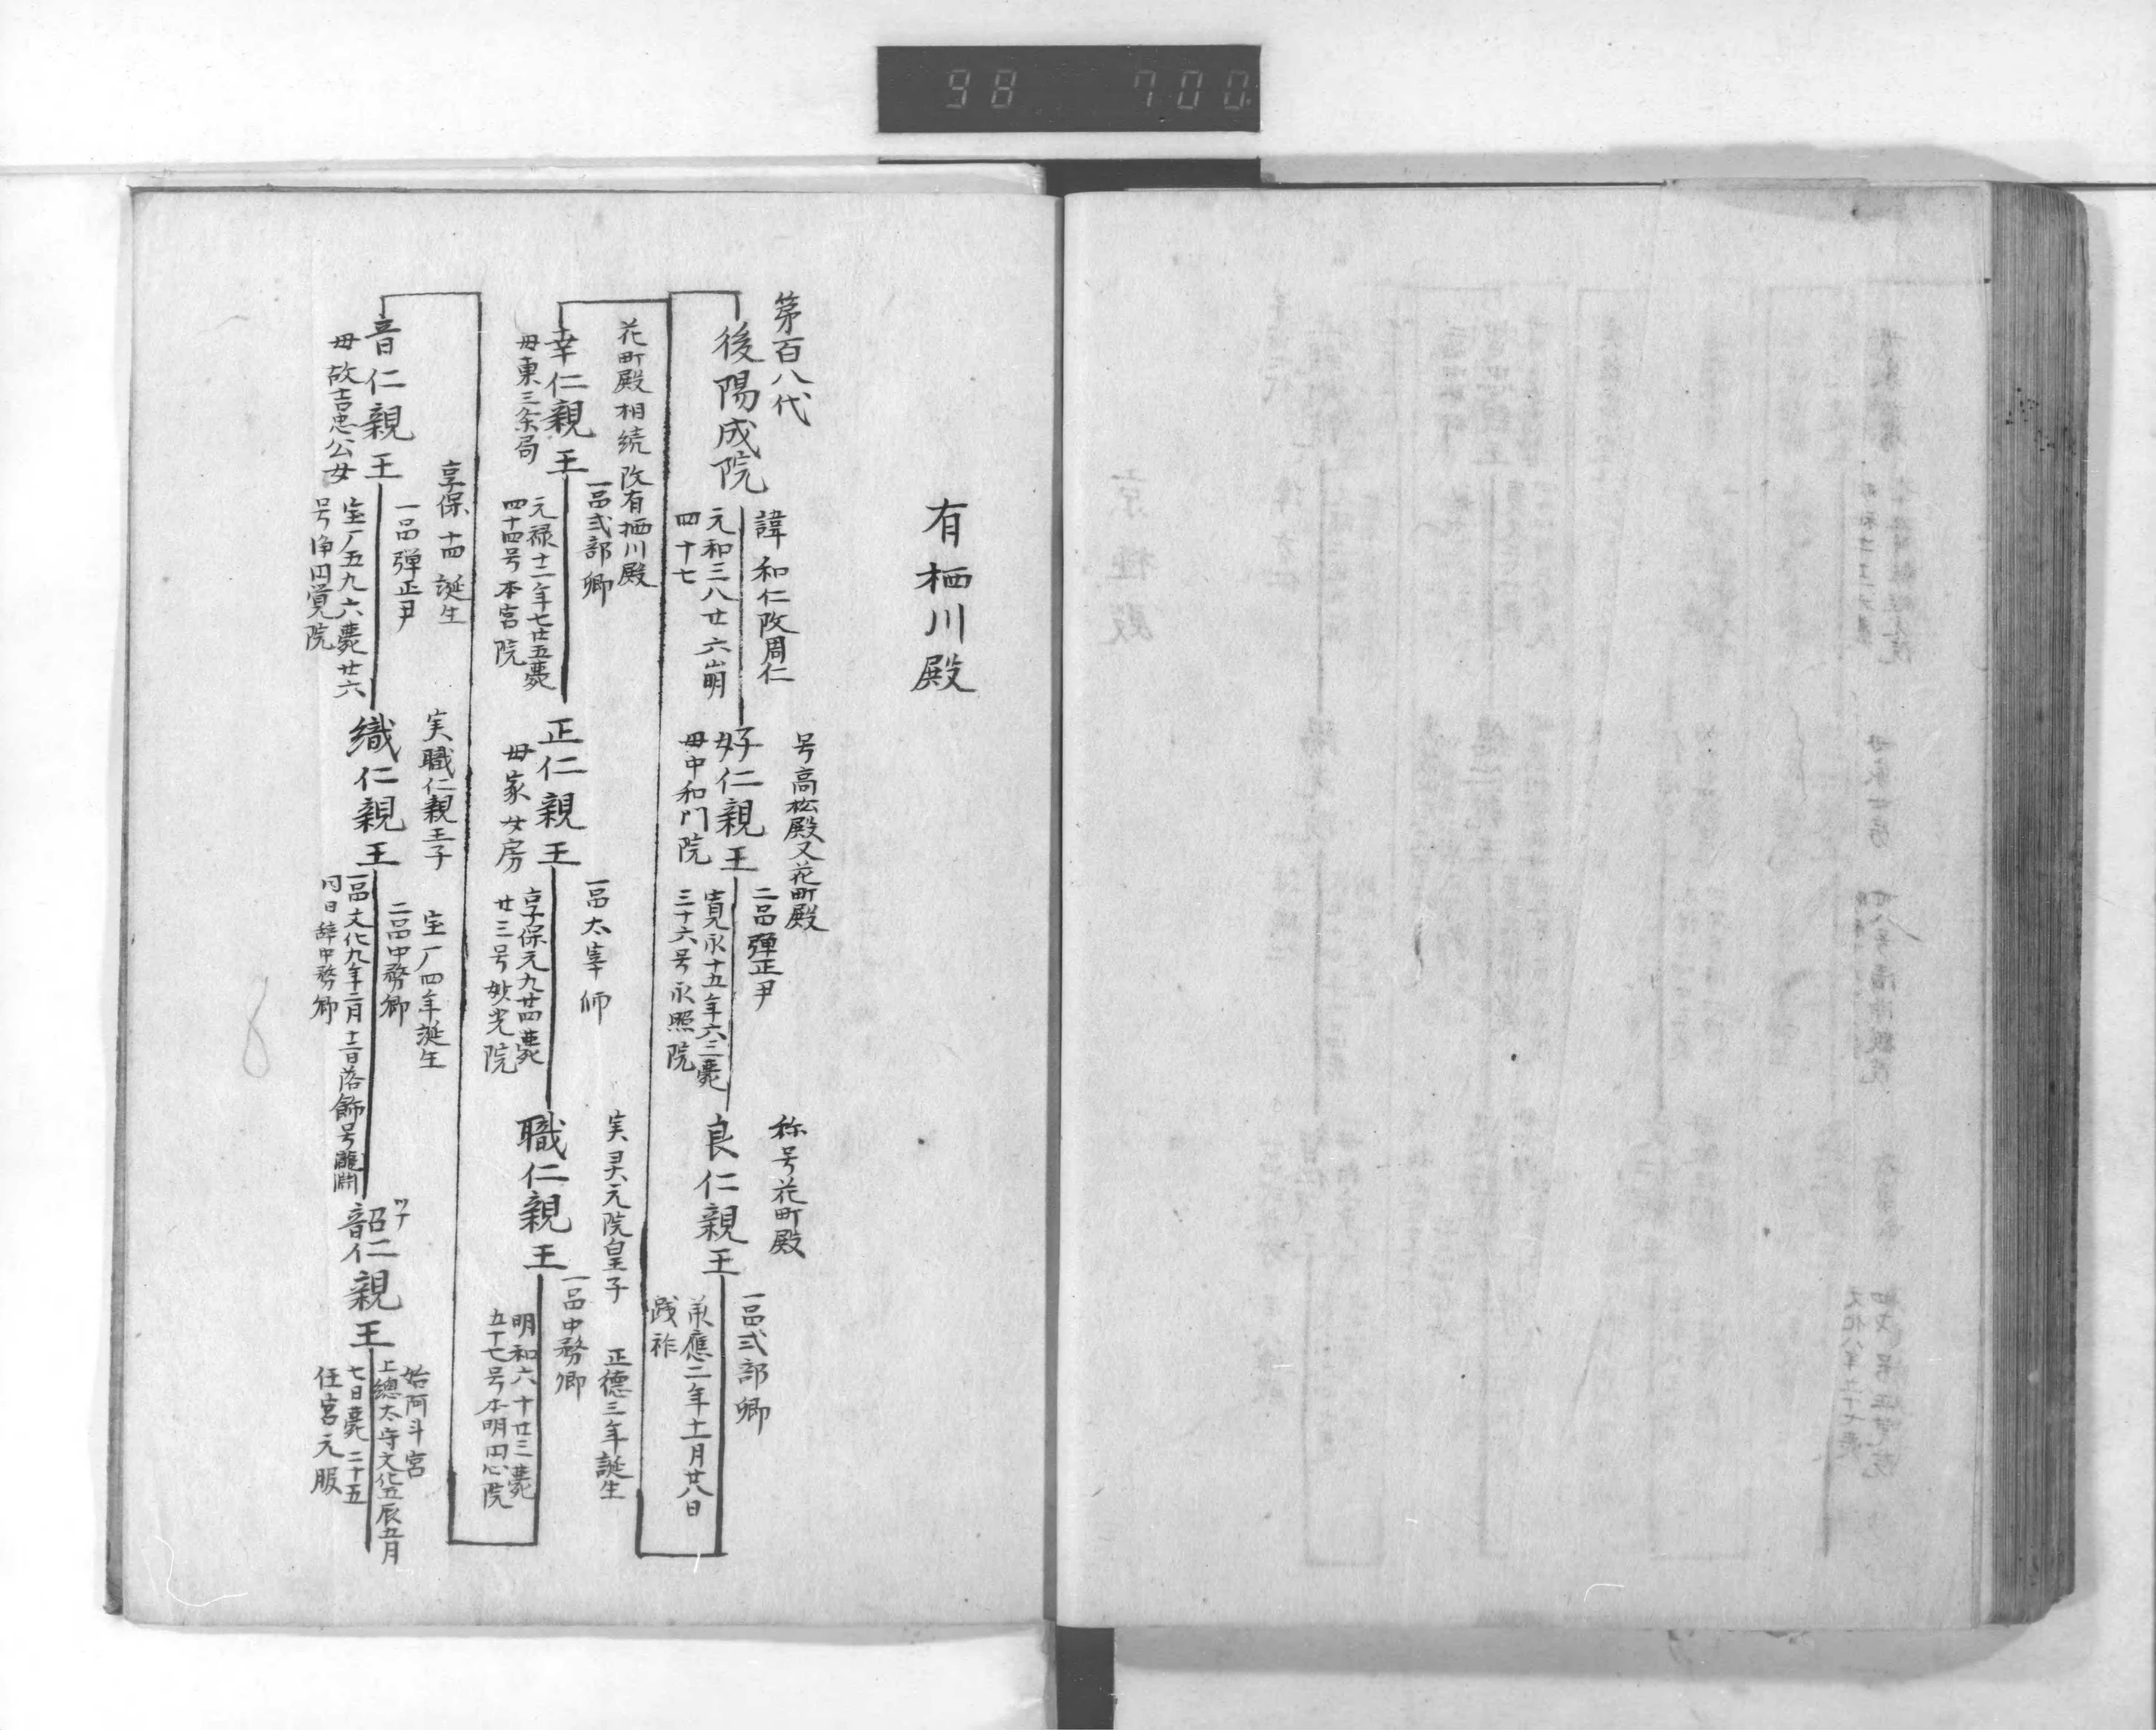 98 700
有栖川殿
第百八代
後陽成院
諱和仁改周仁
元和三八廿六崩
四十七
号高松殿又花町殿
好仁親王
母中和門院
二品弾正尹
寛永十五年六三薨
三十六号永照院
称号花町殿
良仁親王
一品式部卿
承應二年十一月廿八日
践祚
花町殿相続改有栖川殿
幸仁親王
母東三条局
一品式部卿
元禄十二年七廿五薨
四十四号本宮院
正仁親王
母家女房
一品太宰帅
享保元九廿四薨
廿三号妙光院
実灵元院皇子 正德三年誕生
職仁親王
一品中務卿
明和六十廿三薨
五十七号本明円心院
享保十四誕生
音仁親王
母故吉忠公女
一品弾正尹
宝厂五九六薨廿六
号净円覚院
実職仁親王子 宝厂四年誕生
織仁親王
二品中務卿
一品文化九年二月十三日落飾号龍淵
同日辞中務卿
ツナ
韶仁親王
始阿斗宮
上總太守文化五辰五月
七日薨二十五
任宮元服